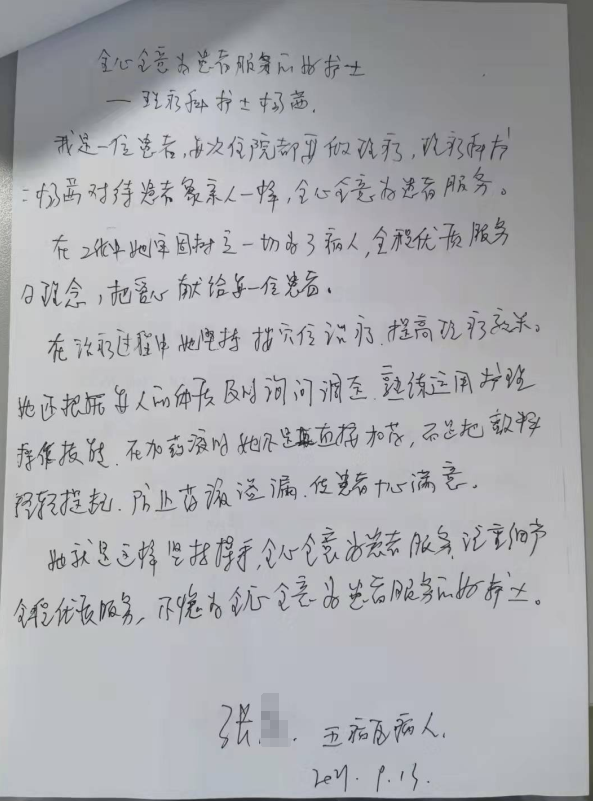 全心全意为患者服务的好护士
——理疗科护士杨茜.
我是一位患者,每次住院都要做理疗,理疗科护
士杨茜对待患者象亲人一样,全心全意为患者服务。
在工作中她牢固树立一切为了病人,全程优质服务
的理念,把爱心献给每一位患者。
在治疗过程中她坚持按穴位治疗.提高理疗效果。
她还根据每人的体质及时询问调整.熟练运用护理
操作技能.在加药液时她不是直接加药,而是把敷料
轻轻提起.防止药液溢漏.使患者十分满意。
她就是这样坚持操守,全心全意为患者服务.注重细节
全程优质服务,不愧为全心全意为患者服务的好护士。
张 . 五病区病人.
2021.9.13.